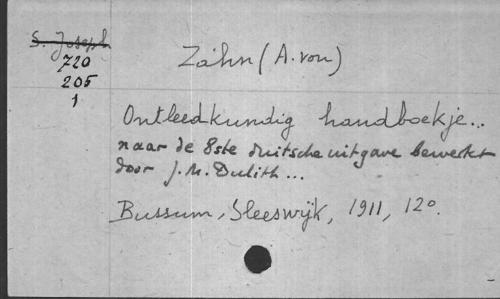 S. Joseph
720
205
1
Zahn (A. von)
Ontleedkundig handboekje...
naar de 8ste duitsche uitgave bewerkt
door J. M. Dulith...
Bussum, Sleeswijk, 1911, 12°.